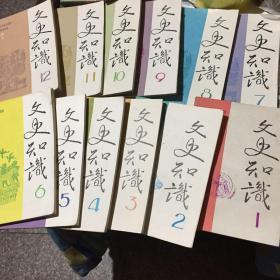 文史知識
12
文史知識
11
文史知識
10
文史知識
9
文史知識
8
文史知識
7
文史知識
6
文史知識
5
文史知識
4
文史知識
3
文史知識
2
文史知識
1